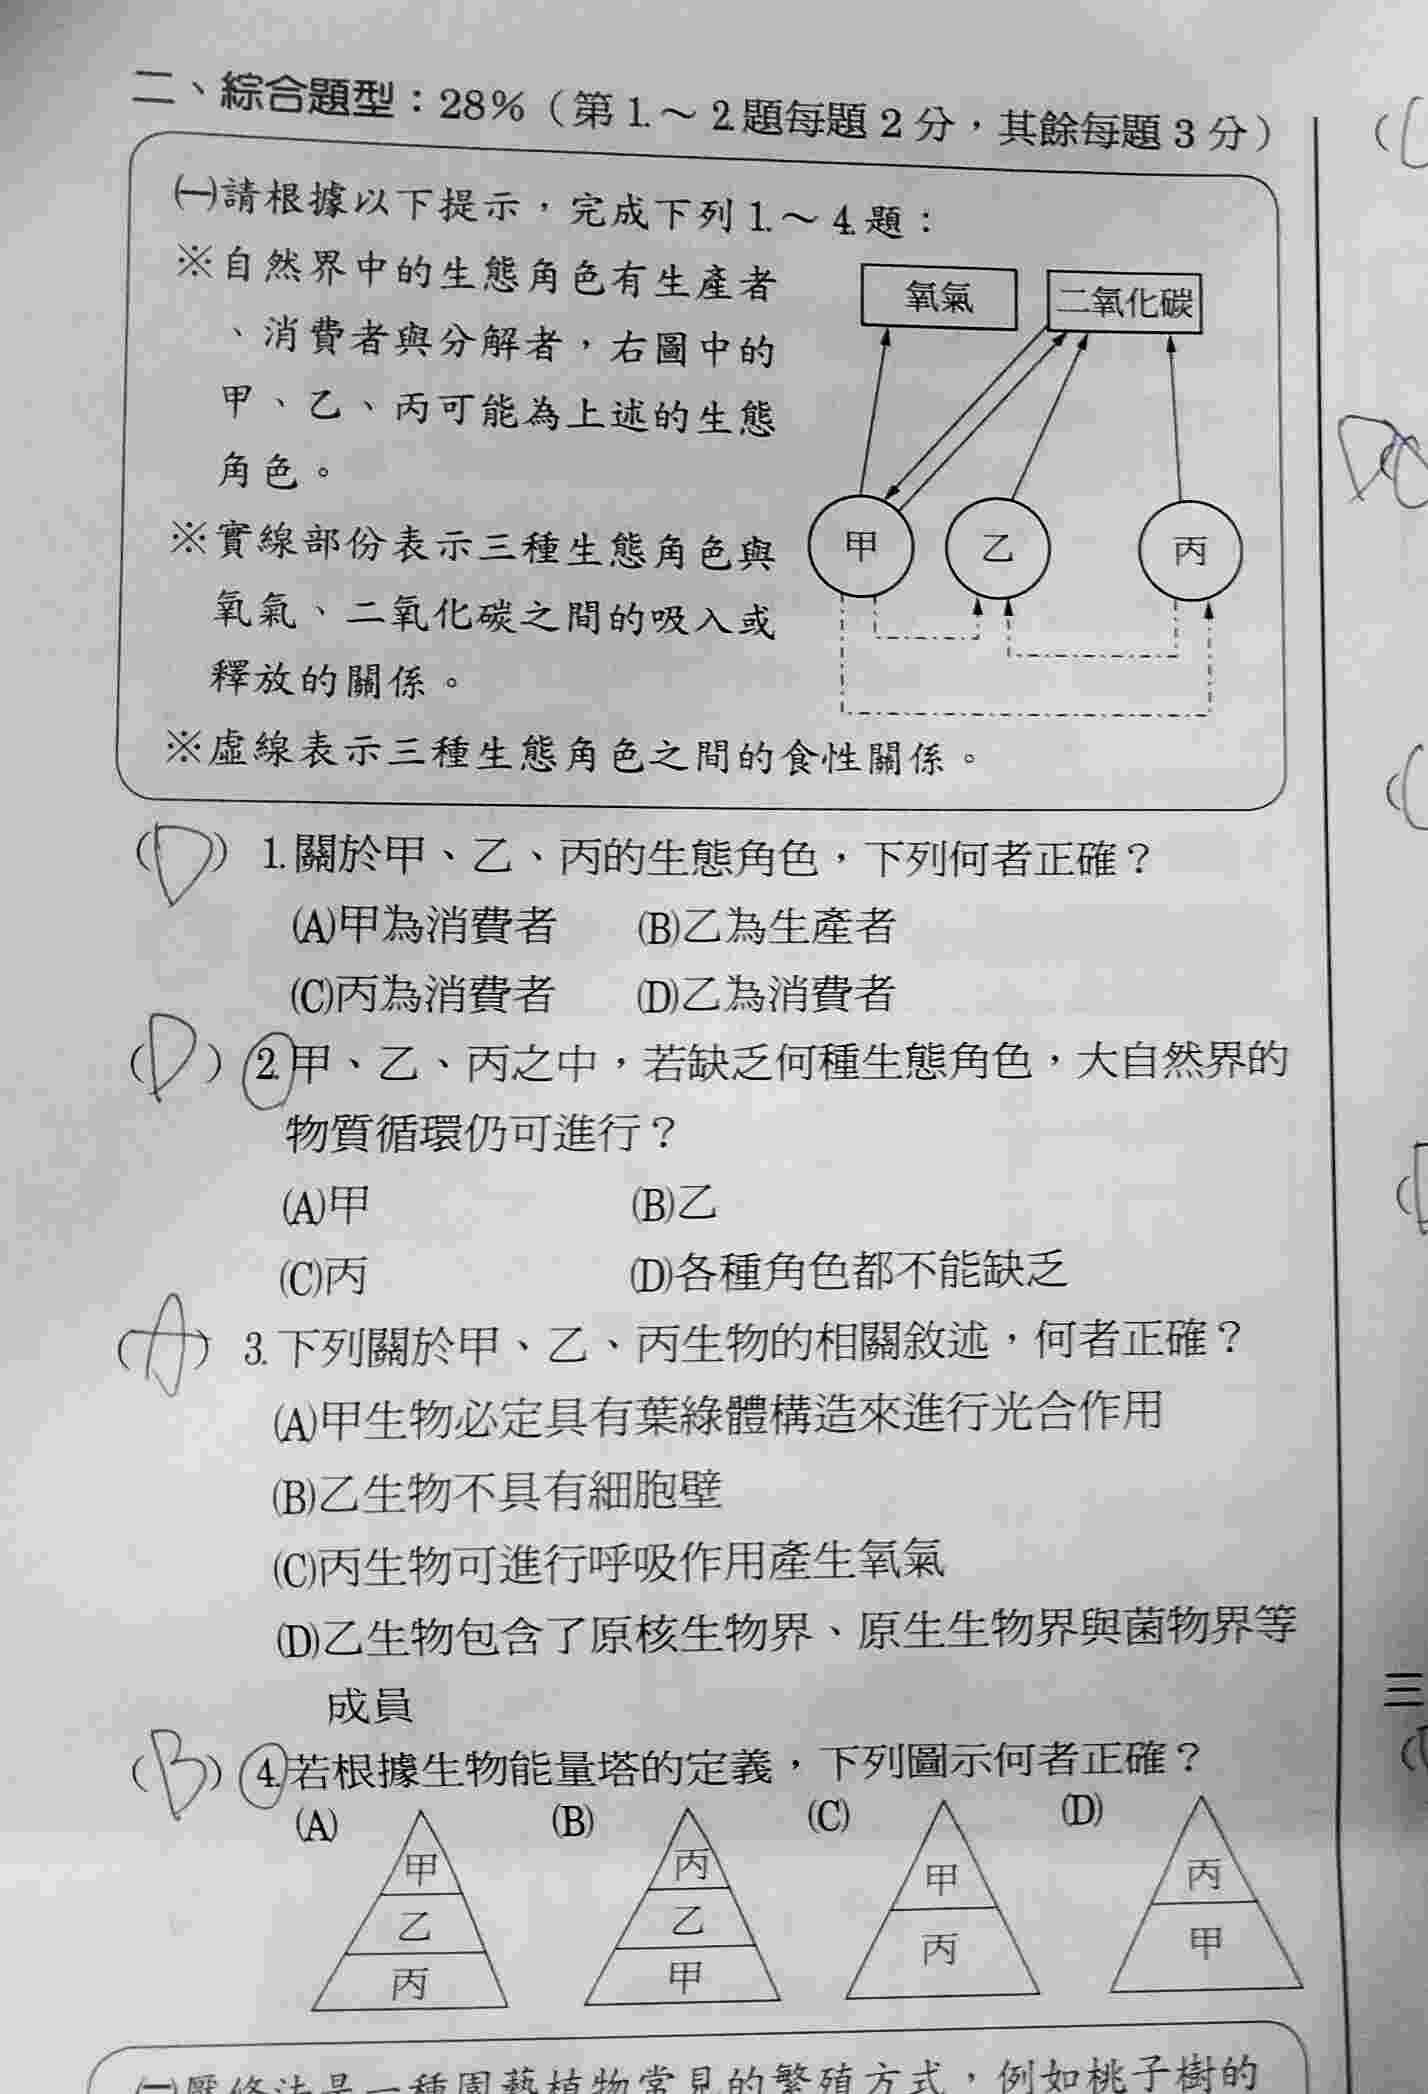 二、綜合題型：28%（第1.～2.題每題2分，其餘每題3分）
㈠請根據以下提示，完成下列1.～4.題：
※自然界中的生態角色有生產者
、消費者與分解者，右圖中的
甲、乙、丙可能為上述的生態
角色。
※實線部份表示三種生態角色與
氧氣、二氧化碳之間的吸入或
釋放的關係。
※虛線表示三種生態角色之間的食性關係。
氧氣 二氧化碳
甲 乙 丙
(D) 1.關於甲、乙、丙的生態角色，下列何者正確？
(A)甲為消費者 (B)乙為生產者
(C)丙為消費者 (D)乙為消費者
(D) 2.甲、乙、丙之中，若缺乏何種生態角色，大自然界的
物質循環仍可進行？
(A)甲 (B)乙
(C)丙 (D)各種角色都不能缺乏
(A) 3.下列關於甲、乙、丙生物的相關敘述，何者正確？
(A)甲生物必定具有葉綠體構造來進行光合作用
(B)乙生物不具有細胞壁
(C)丙生物可進行呼吸作用產生氧氣
(D)乙生物包含了原核生物界、原生生物界與菌物界等
成員
(B) 4.若根據生物能量塔的定義，下列圖示何者正確？
(A) (B) (C) (D)
甲 丙 甲 丙
乙 乙 丙 甲
丙 甲
㈡壓條法是一種園藝植物常見的繁殖方式，例如桃子樹的
三